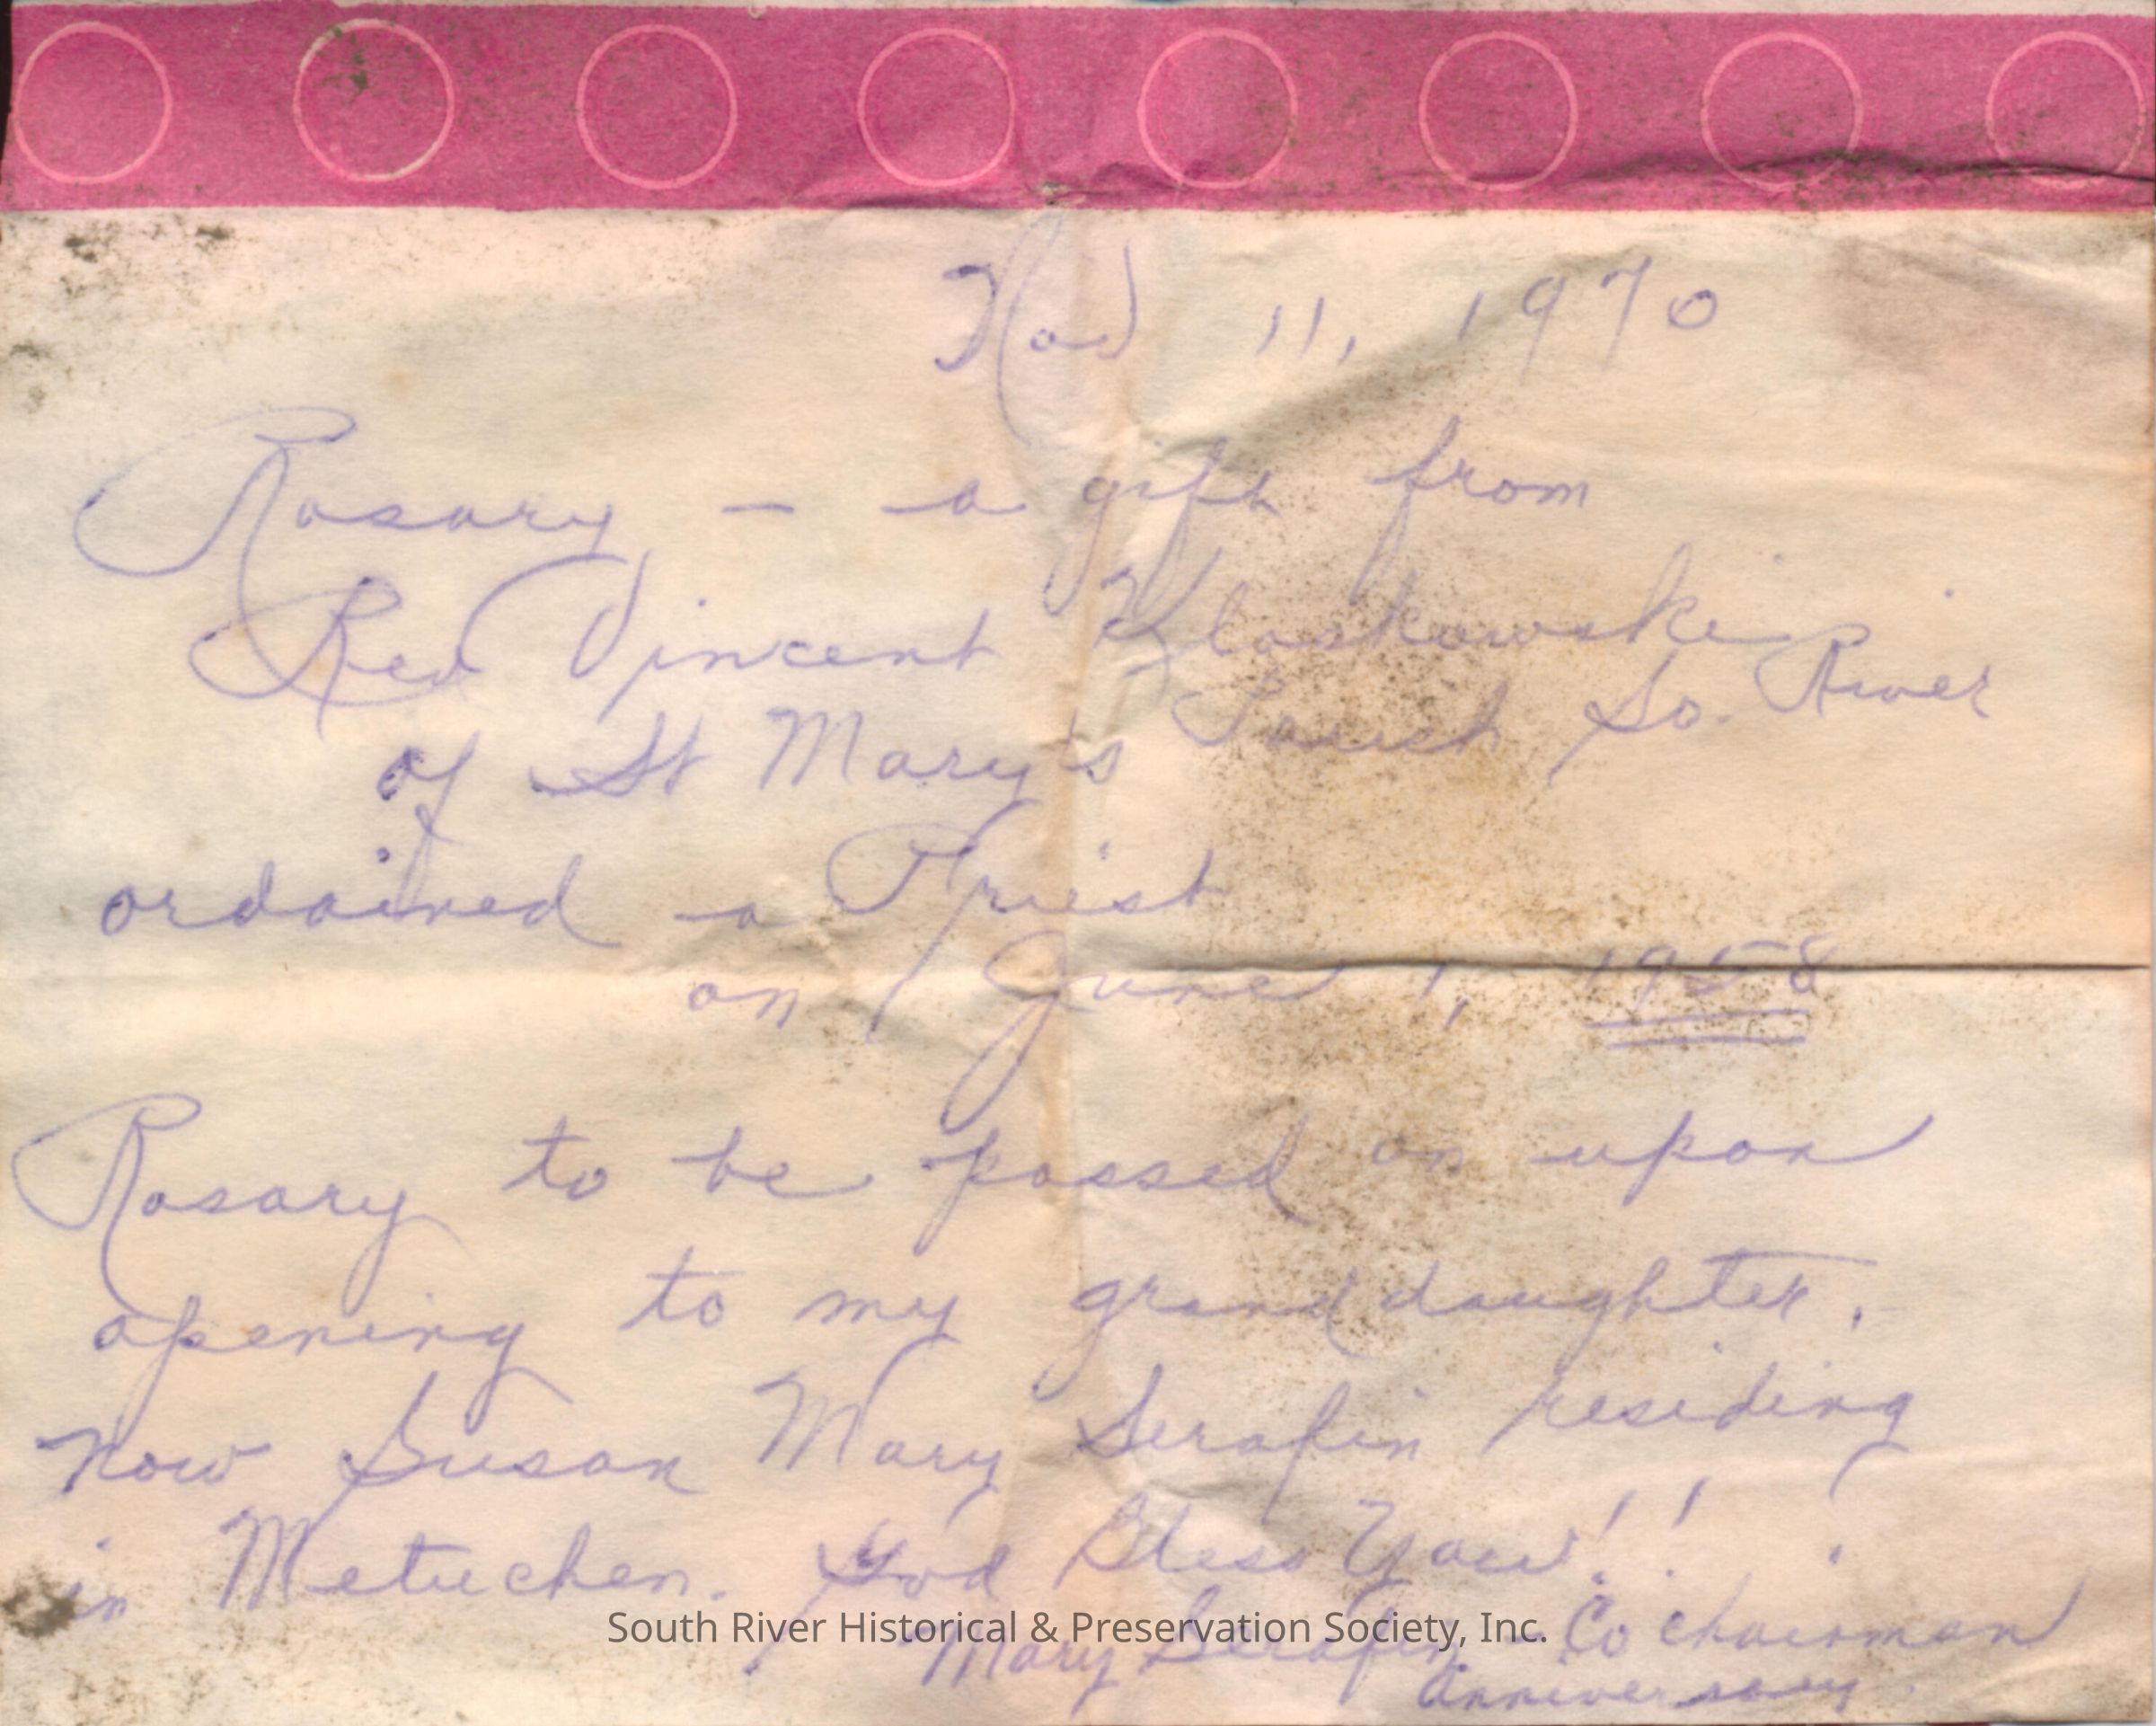 Nov 11, 1970
Rosary - a gift from
Rev Vincent Kloskowski
of St Mary's Parish So. River
ordained a Priest
on June 1, 1958
Rosary to be passed on upon
opening to my granddaughter.
Now Susan Mary Serafin residing
in Metuchen. God Bless You!!!
Mary Serafin - Co chairman
Anniversary.
South River Historical & Preservation Society, Inc.